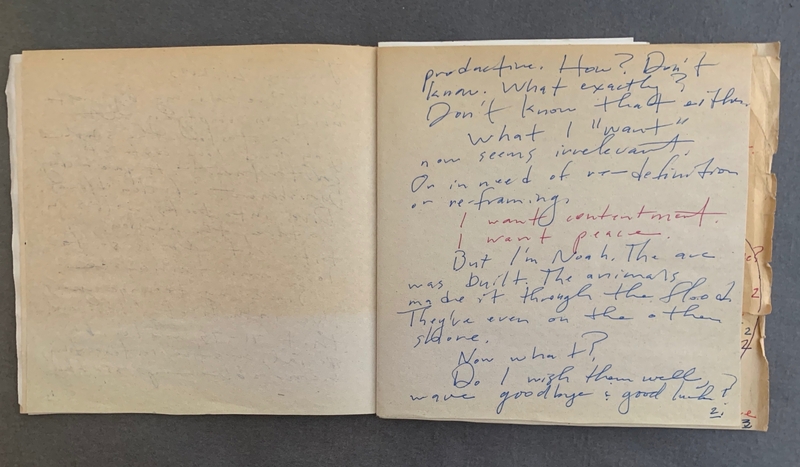 productive. How? Don't
know. What exactly?
Don't know that either.
What I "want"
now seems irrelevant.
Or in need of re-definition
or re-framing.
I want contentment.
I want peace.
But I'm Noah. The arc
was built. The animals
made it through the flood.
They've even on the other
shore.
Now what?
Do I wish them well,
wave goodbye & good luck?
2.
2
2
2